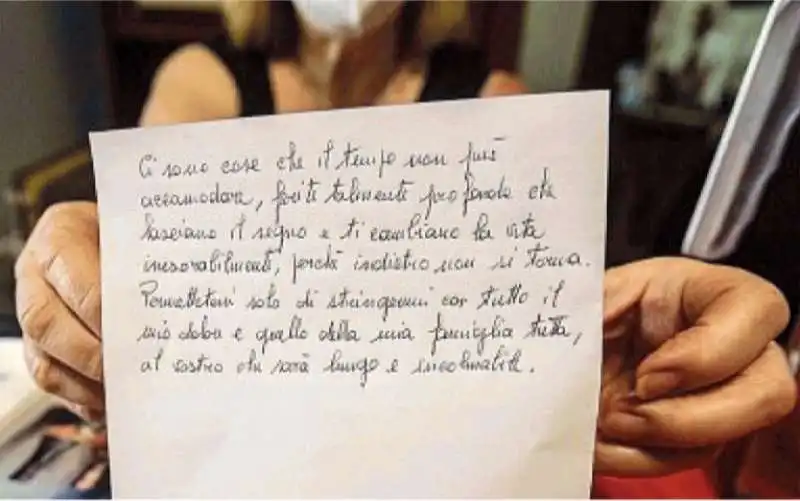 Ci sono cose che il tempo non può
accomodare, ferite talmente profonde che
lasciano il segno e ti cambiano la vita
inesorabilmente, perché indietro non si torna.
Permettetemi solo di stringermi con tutto il
mio dolore e quello della mia famiglia tutta,
al vostro che sarà lungo e incolmabile.